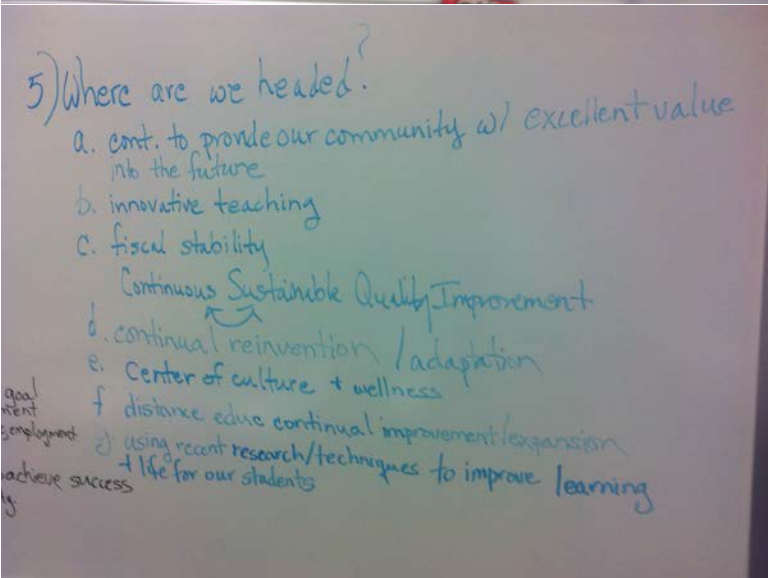 5) Where are we headed?
a. cont. to provide our community w/ excellent value
into the future
b. innovative teaching
c. fiscal stability
Continuous Sustainable Quality Improvement
d. continual reinvention / adaptation
e. Center of culture + wellness
f distance educ continual improvement/expansion
g) using recent research/techniques to improve learning
+ life for our students
goal
ment
employment
achieve success